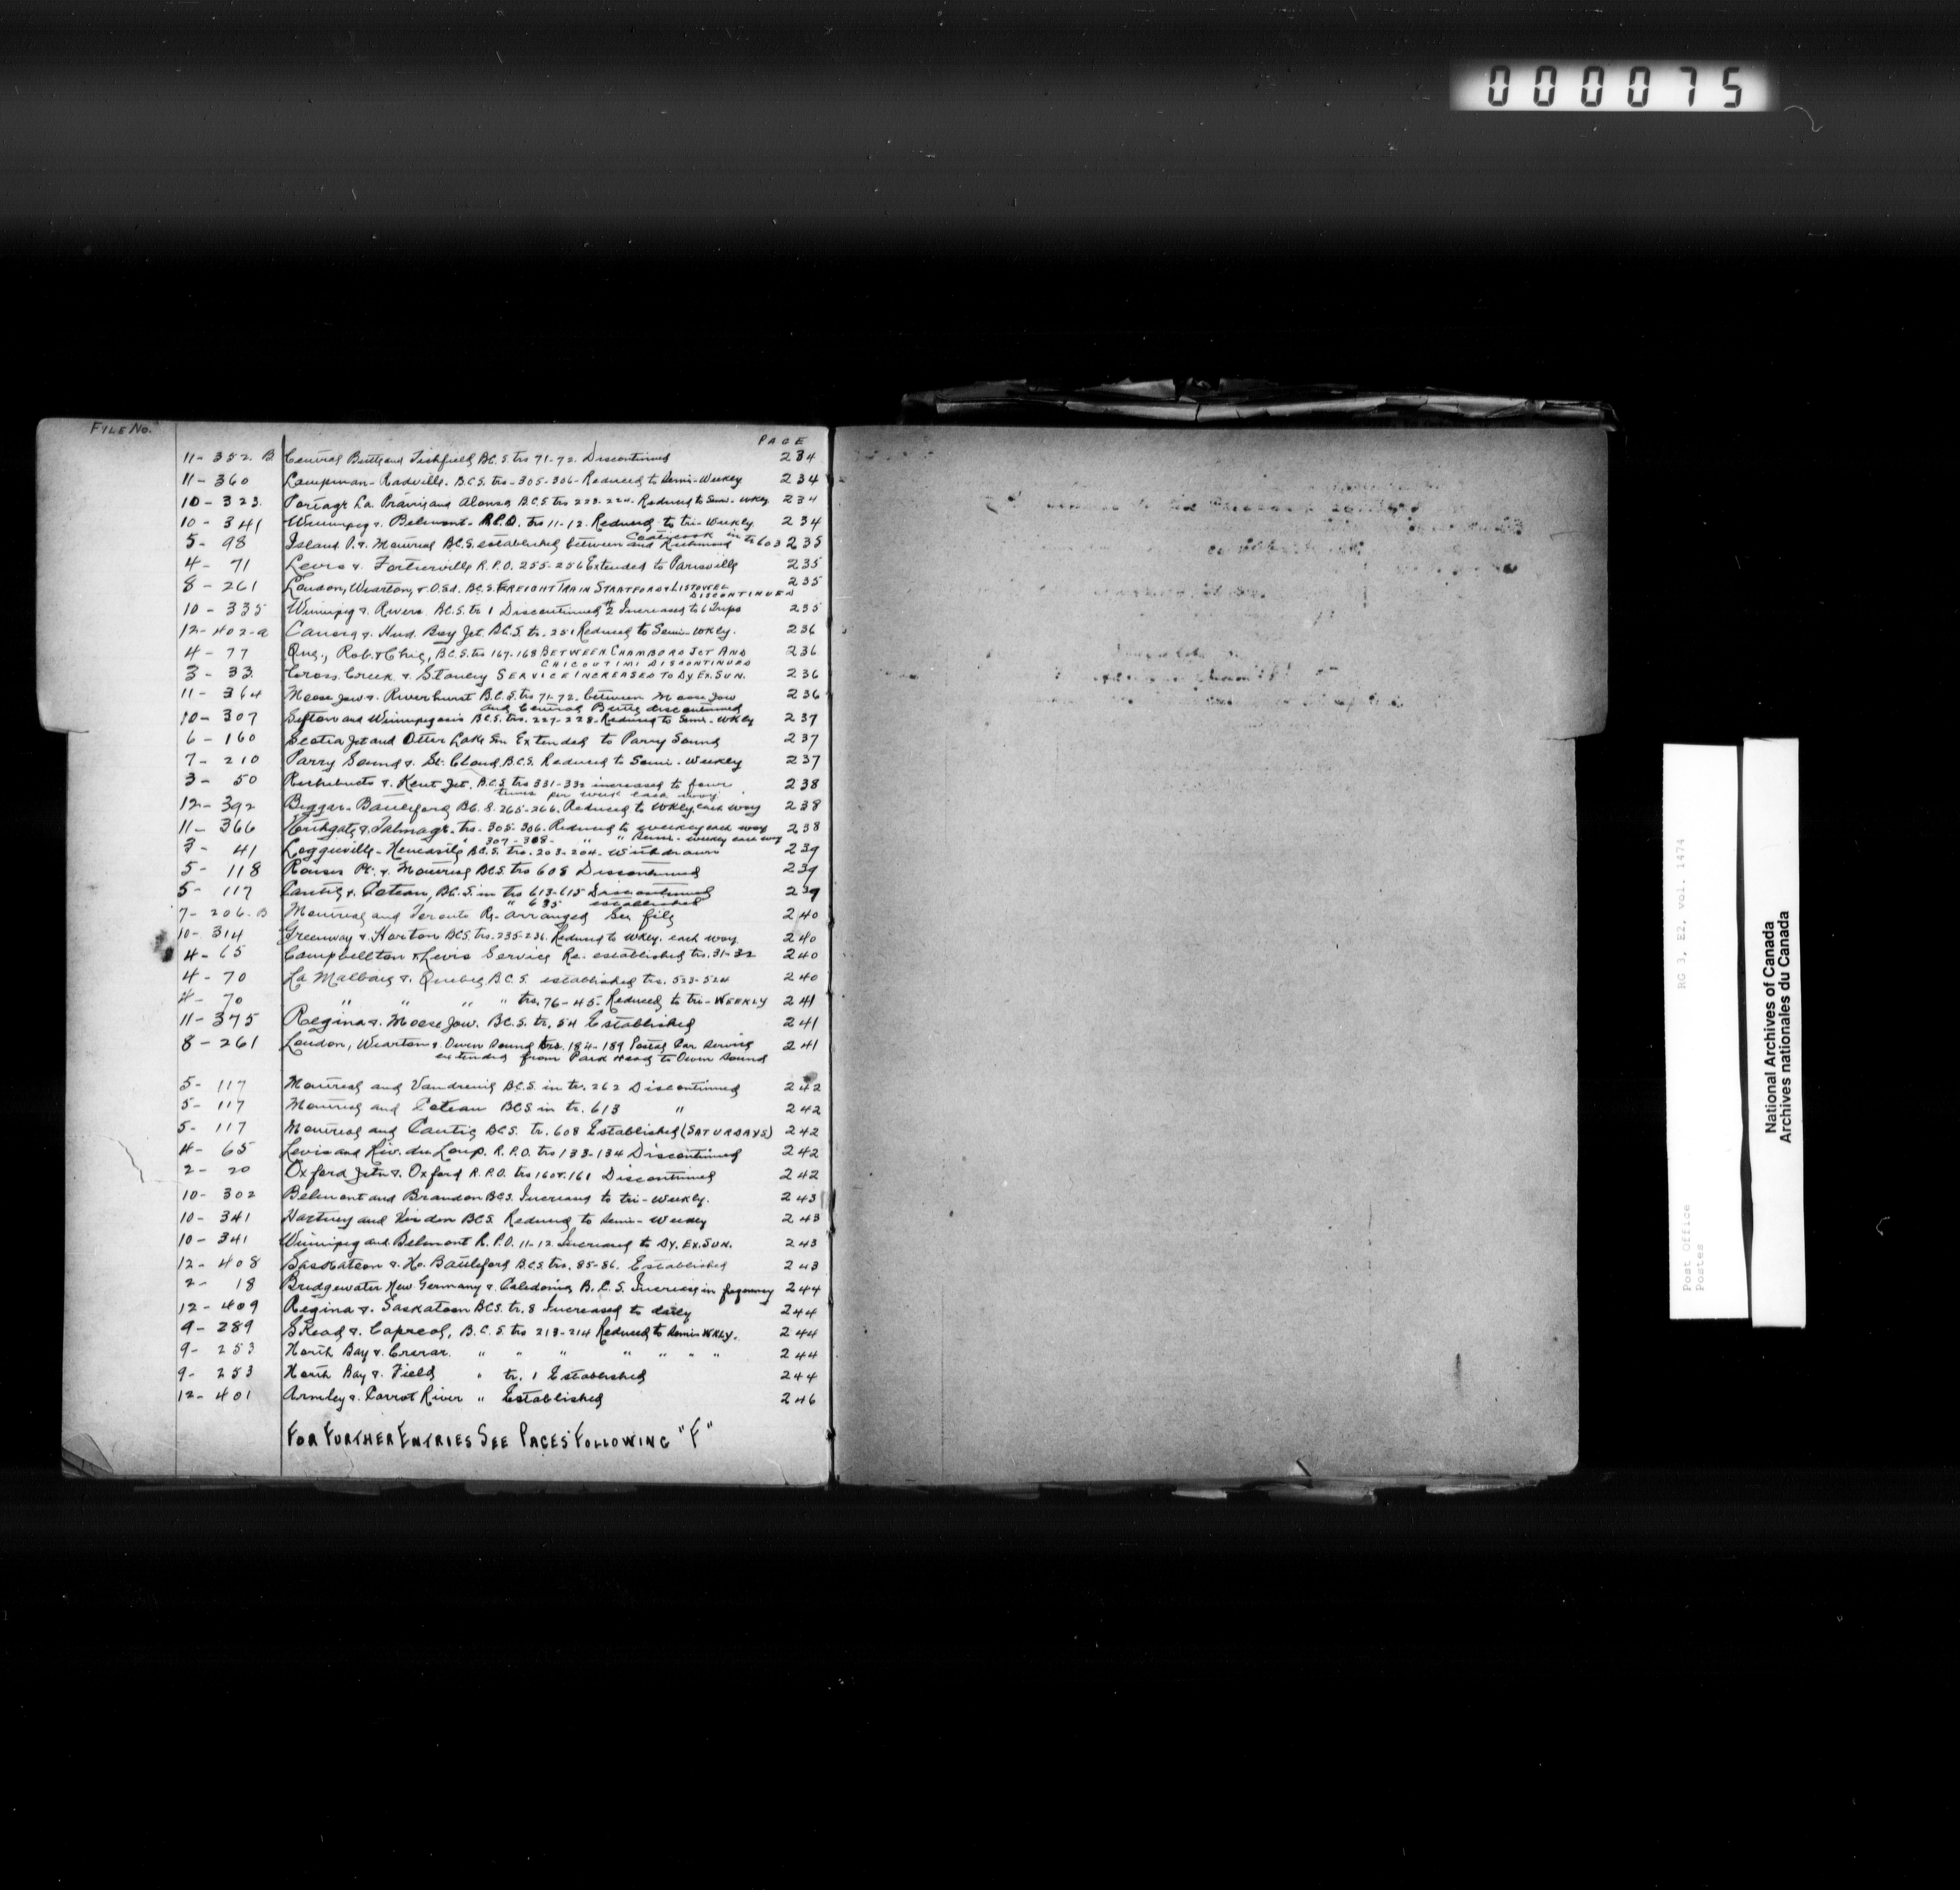 000075
FILE No.
PAGE
11- 352. B. Central Butte and Fishfield B.C.S. trs 71-72. Discontinued 234
11- 360 Lampman- Radville. B.C.S. trs- 305-306- Reduced to Semi-Weekly 234
10- 323. Portage La Prairie and Alonsa B.C.S. trs 223-224. Reduced to Semi- wkly 234
10- 341 Winnipeg & Belmont- R.P.O. trs 11-12. Reduced to tri-weekly 234
5- 98 Island P. & Montreal B.C.S. established between Coaticook and Richmond in tr 603 235
4- 71 Levis & Fortierville R.P.O. 255-256 Extended to Parisville 235
8- 261 London, Wiarton, & O.Sd. B.C.S. FREIGHT TRAIN STRATFORD & LISTOWEL 235
DISCONTINUED
10- 335 Winnipeg & Rivers B.C.S. tr 1 Discontinued tr 2 Increased to 6 trips 235
12- 402-a Canora & Hud. Bay Jct. B.C.S. tr. 251 Reduced to Semi-wkly. 236
4- 77 Que., Rob. & Chic, B.C.S. trs 167-168 BETWEEN CHAMBORD JCT AND 236
CHICOUTIMI DISCONTINUED
3- 33 Cross Creek & Stanley SERVICE INCREASED TO DY EX. SUN. 236
11- 364 Moose Jaw & Riverhurst B.C.S. trs 71-72. between Moose Jaw 236
and Central Butte discontinued
10- 307 Sifton and Winnipegosis B.C.S. trs. 227-228- Reduced to Semi- wkly 237
6- 160 Scotia Jct and Otter Lake Sn Extended to Parry Sound 237
7- 210 Parry Sound & St. Cloud, B.C.S. Reduced to Semi-Weekly 237
3- 50 Richibucto & Kent Jct. B.C.S. trs 331-332 increased to four 238
times per week each way.
12- 392 Biggar- Battleford B.C.S. 265-266. Reduced to wkly. each way 238
11- 366 Northgate & Talmage- trs- 305-306. Reduced to weekly each way 238
" 307-308- " " Semi- weekly each way
3- 41 Loggieville- Newcastle B.C.S. trs. 203-204- Withdrawn 239
5- 118 Rouses Pt. & Montreal B.C.S. trs 608 Discontinued 239
5- 117 Cantic & Coteau, B.C.S. in trs 613-615 Discontinued 239
" 635 established
7- 206. B Montreal and Toronto Re- arranged See file 240
10- 314 Greenway & Horton B.C.S. trs. 235-236. Reduced to wkly. each way 240
4- 65 Campbellton & Levis Service Re- established trs. 31-32 240
4- 70 La Malbaie & Quebec B.C.S. established trs. 523-524 240
4- 70 " " " " trs. 76-45- Reduced to tri-WEEKLY 241
11- 375 Regina & Moose Jaw. B.C.S. tr. 54 Established 241
8- 261 London, Wiarton & Owen Sound trs. 184-189 Postal Car Service 241
extended from Park Head to Owen Sound
5- 117 Montreal and Vaudreuil B.C.S. in tr. 262 Discontinued 242
5- 117 Montreal and Coteau B.C.S in tr. 613 " 242
5- 117 Montreal and Cantic B.C.S. tr. 608 Established (SATURDAYS) 242
4- 65 Levis and Riv. du Loup. R.P.O. trs 133-134 Discontinued 242
2- 20 Oxford Jctn & Oxford R.P.O. trs 160 & 161 Discontinued 242
10- 302 Belmont and Brandon B.C.S. Increase to tri-weekly. 243
10- 341 Hartney and Virden B.C.S. Reduced to Semi- Weekly 243
10- 341 Winnipeg and Belmont R.P.O. 11-12 Increased to DY. EX. SUN. 243
12- 408 Saskatoon & No. Battleford B.C.S. trs. 85-86. Established 243
2- 18 Bridgewater New Germany & Caledonia B.C.S. Increase in frequency 244
12- 409 Regina & Saskatoon B.C.S. tr. 8 Increased to daily 244
9- 289 Skead & Capreol, B.C.S. trs 213-214 Reduced to Semi WKLY. 244
9- 253 North Bay & Crerar. " " " " " " " 244
9- 253 North Bay & Field " tr. 1 Established 244
12- 401 Armley & Carrot River " Established 246
FOR FURTHER ENTRIES SEE PAGES FOLLOWING "F"
RG 3, E2, vol. 1474
Post Office
Postes
National Archives of Canada
Archives nationales du Canada